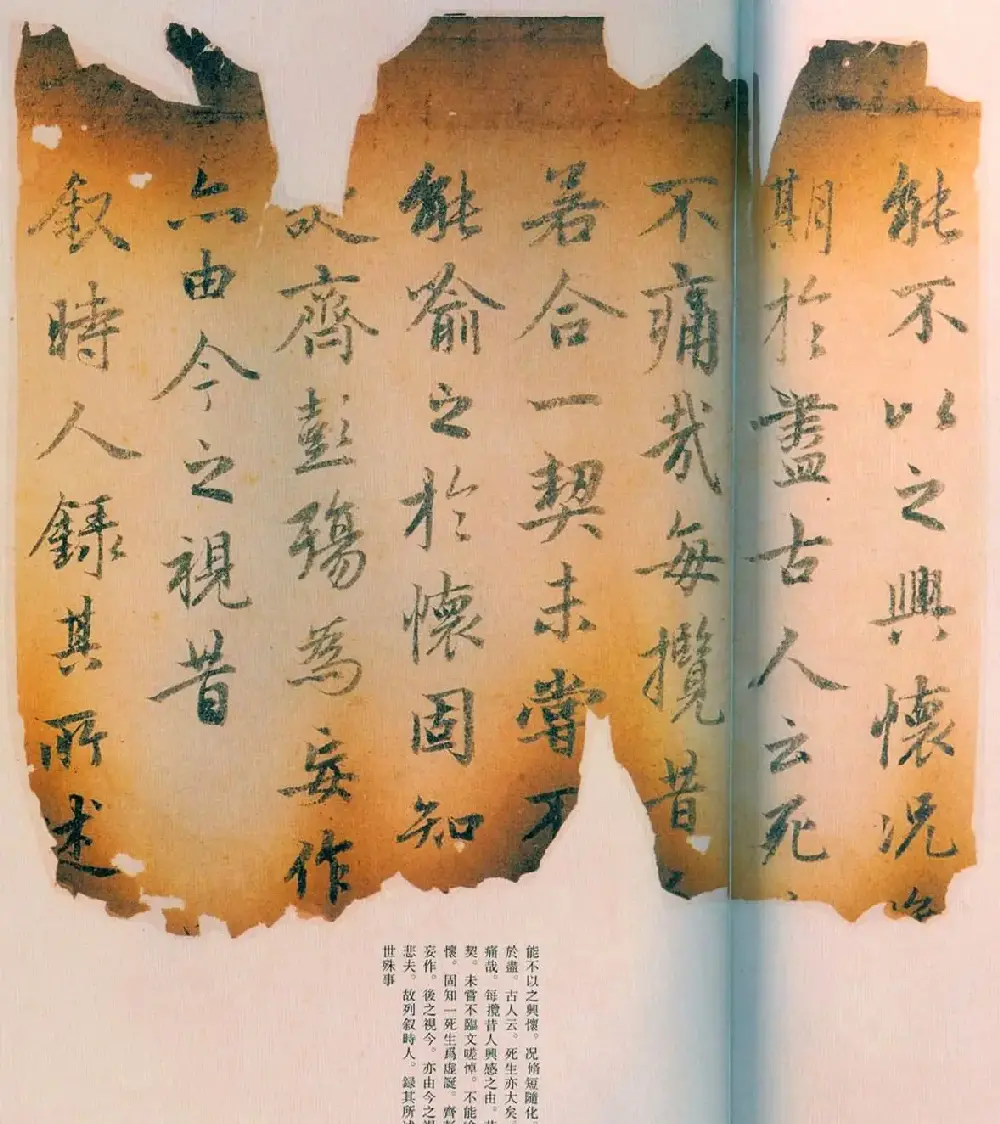 能不以之興懷况
期於盡古人云死
不痛哉每攬昔
若合一契未嘗不
能喻之於懷固知
齊彭殤為妄作
亦由今之視昔
叙時人錄其所述
能不以之興懷。况脩短隨化。
於盡。古人云。死生亦大矣。
痛哉。每攬昔人興感之由。
契。未嘗不臨文嗟悼。不能
懷。固知一死生爲虛誕。齊
妄作。後之視今。亦由今之
悲夫。故列叙時人。録其所
世殊事